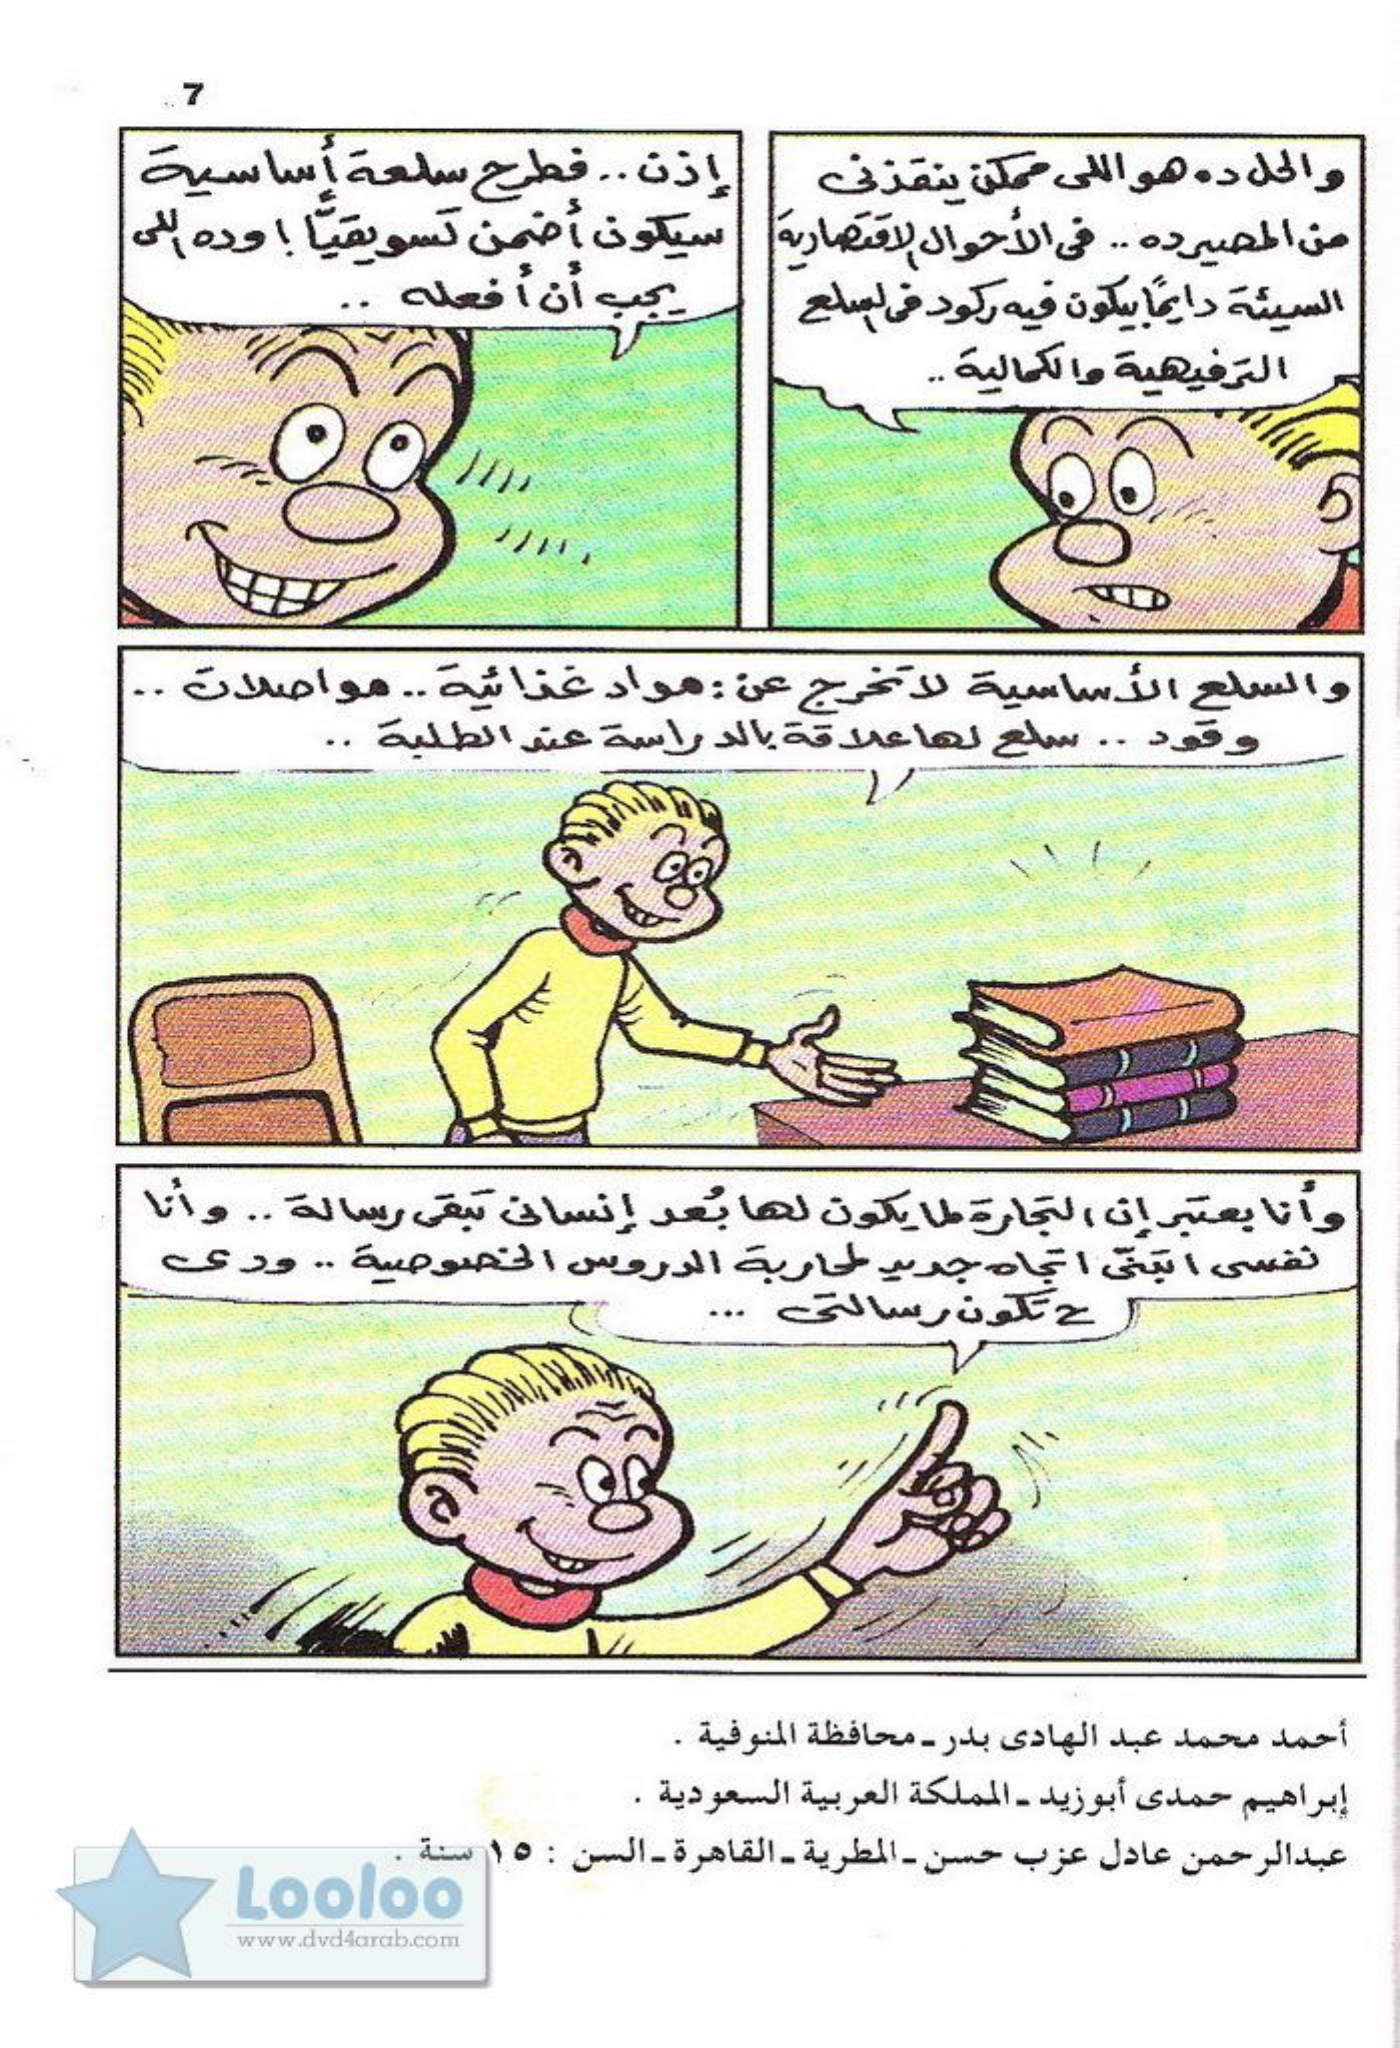 7
والحل ده هو اللى ممكن ينقذنى
من المصير ده .. فى الأحوال الاقتصادية
السيئة دايمًا بيكون فيه ركود فى السلع
الترفيهية والكمالية ..
إذن .. فطرح سلعة أساسية
سيكون أضمن تسويقيًّا ! وده اللى
يجب أن أفعله ..
والسلع الأساسية لا تخرج عن : مواد غذائية .. مواصلات ..
وقود .. سلع لها علاقة بالدراسة عند الطلبة ..
وأنا بعتبر إن التجارة لما يكون لها بُعد إنسانى تبقى رسالة .. وأنا
نفسى اتبنّى اتجاه جديد لمحاربة الدروس الخصوصية .. ودى
ح تكون رسالتى ...
أحمد محمد عبد الهادى بدر ـ محافظة المنوفية .
إبراهيم حمدى أبوزيد ـ المملكة العربية السعودية .
عبدالرحمن عادل عزب حسن ـ المطرية ـ القاهرة ـ السن : ١٥ سنة .
Looloo
www.dvd4arab.com